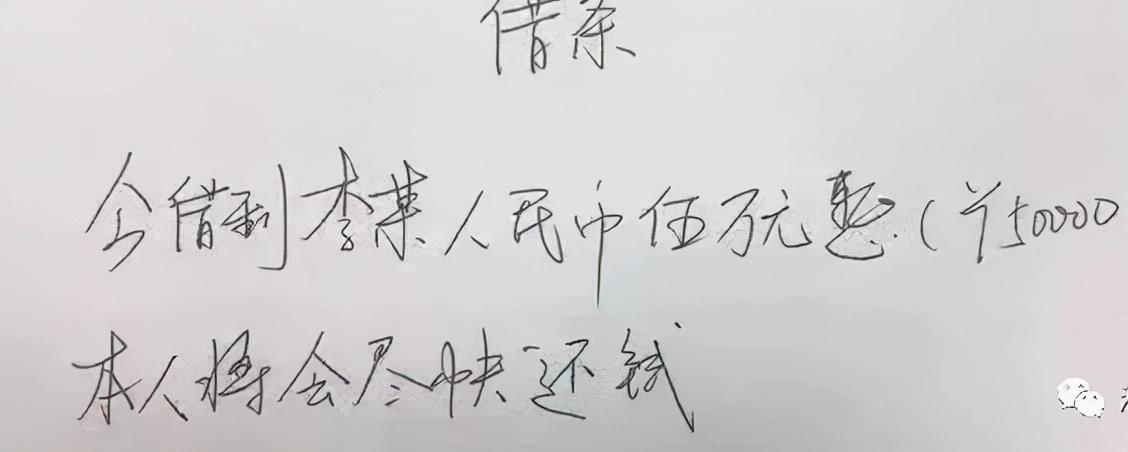 借条
今借到李某人民币伍万元整(￥50000
本人将会尽快还钱